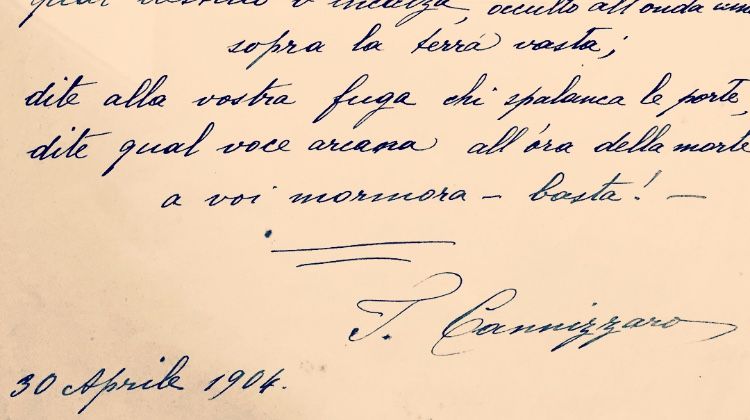 qual destino v'incalza, occulto all'onda
sopra la terra vasta;
dite alla vostra fuga chi spalanca le porte,
dite qual voce arcana all'ora della morte
a voi mormora – basta! –
T. Cannizzaro
30 Aprile 1904.